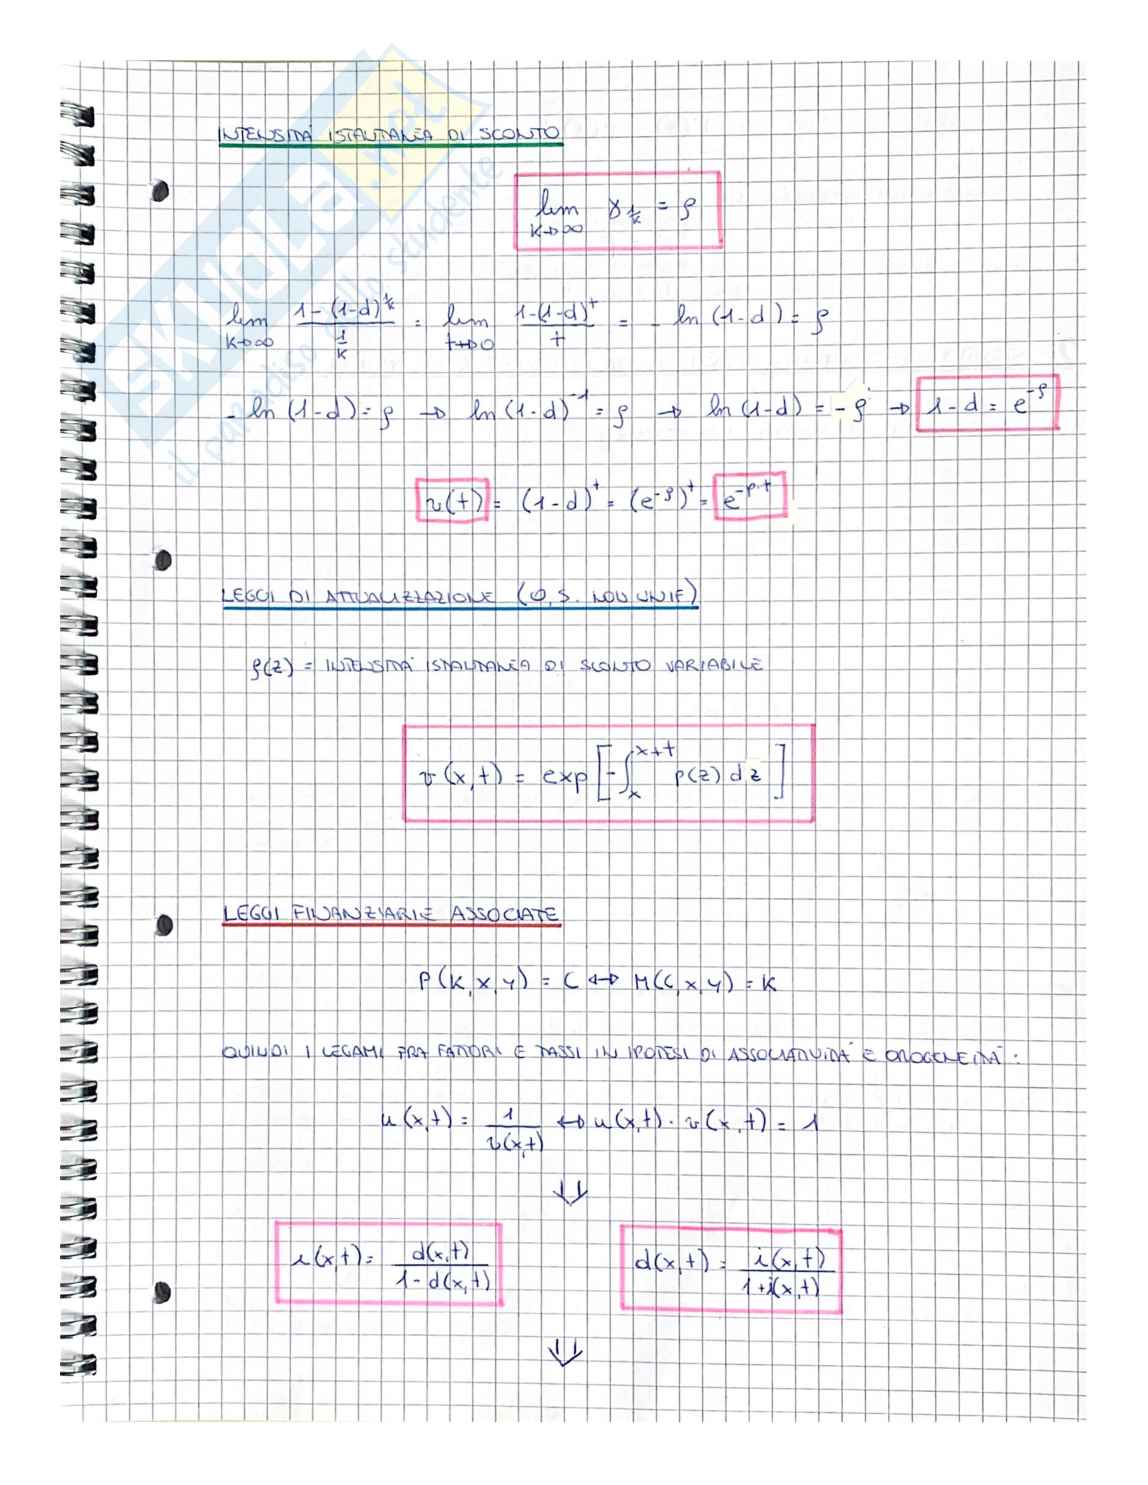 INTENSITÀ ISTANTANEA DI SCONTO
lim K→∞ γ 1/k = ρ
lim K→∞ (1-(1-d)^(1/k))/(1/K) = lim t→0 (1-(1-d)^t)/t = - ln(1-d) = ρ
- ln(1-d) = ρ → ln(1-d)^-1 = ρ → ln(1-d) = -ρ → 1-d = e^-ρ
v(t) = (1-d)^t = (e^-ρ)^t = e^-ρ·t
LEGGI DI ATTUALIZZAZIONE (O, S. NON UNIF)
ρ(z) = INTENSITÀ ISTANTANEA DI SCONTO VARIABILE
v(x,t) = exp[-∫_x^x+t ρ(z) dz]
LEGGI FINANZIARIE ASSOCIATE
P(K,x,y) = C ↔ M(C,x,y) = K
QUINDI I LEGAMI FRA FATTORI E TASSI IN IPOTESI DI ASSOCIATIVITÀ E OMOGENEITÀ:
u(x,t) = 1/v(x,t) ↔ u(x,t) · v(x,t) = 1
⇓
i(x,t) = d(x,t)/(1-d(x,t)) d(x,t) = i(x,t)/(1+i(x,t))
⇓
SKUOLA.net
il paradiso dello studente